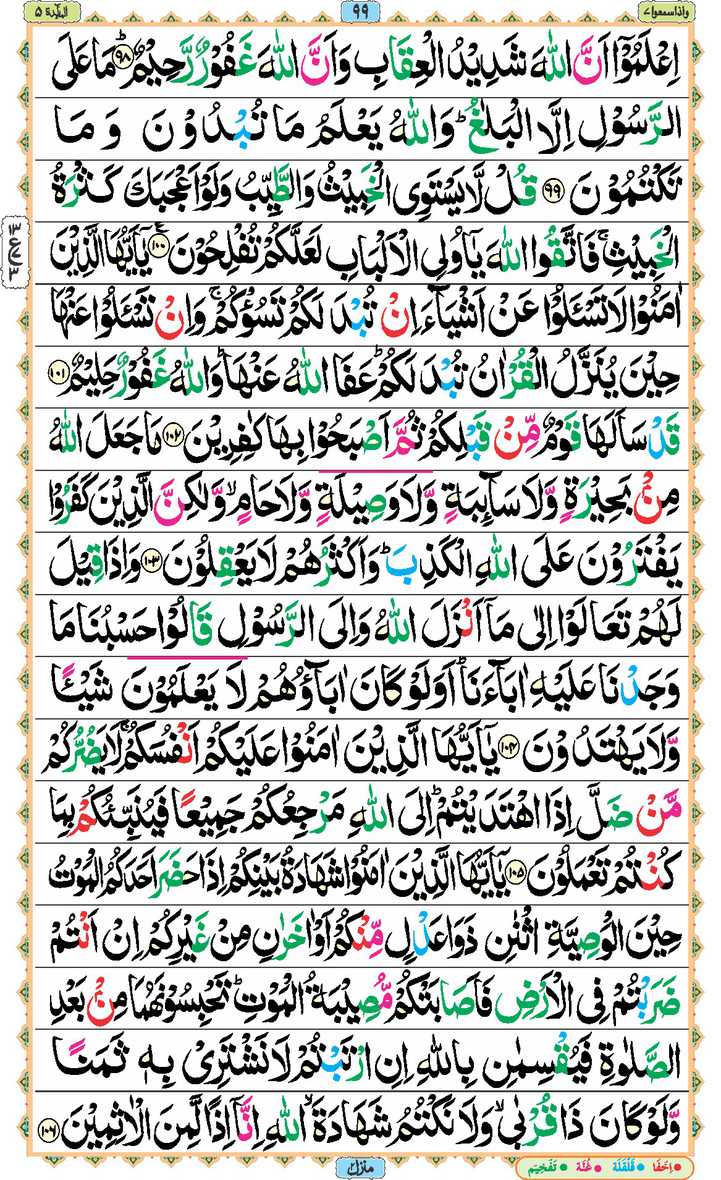 واذاسمعوا ٧
٩٩
المآئدة ٥
اِعْلَمُوْۤا اَنَّ اللّٰهَ شَدِيْدُ الْعِقَابِ وَاَنَّ اللّٰهَ غَفُوْرٌ رَّحِيْمٌ ؕ‏﴿۹۸﴾ مَا عَلَى
الرَّسُوْلِ اِلَّا الْبَلٰغُ ؕ وَاللّٰهُ يَعْلَمُ مَا تُبْدُوْنَ وَمَا
تَكْتُمُوْنَ ﴿۹۹﴾ قُلْ لَّا يَسْتَوِى الْخَبِيْثُ وَالطَّيِّبُ وَلَوْ اَعْجَبَكَ كَثْرَةُ
الْخَبِيْثِ ۚ فَاتَّقُوا اللّٰهَ يٰۤاُولِى الْاَلْبَابِ لَعَلَّكُمْ تُفْلِحُوْنَ ﴿۱۰۰﴾ يٰۤاَيُّهَا الَّذِيْنَ
اٰمَنُوْا لَا تَسْـَٔلُوْا عَنْ اَشْيَآءَ اِنْ تُبْدَ لَكُمْ تَسُؤْكُمْ ۚ وَاِنْ تَسْـَٔلُوْا عَنْهَا
حِيْنَ يُنَزَّلُ الْقُرْاٰنُ تُبْدَ لَكُمْ ؕ عَفَا اللّٰهُ عَنْهَا ؕ وَاللّٰهُ غَفُوْرٌ حَلِيْمٌ ﴿۱۰۱﴾
قَدْ سَاَلَهَا قَوْمٌ مِّنْ قَبْلِكُمْ ثُمَّ اَصْبَحُوْا بِهَا كٰفِرِيْنَ ﴿۱۰۲﴾ مَا جَعَلَ اللّٰهُ
مِنْۢ بَحِيْرَةٍ وَّلَا سَآئِبَةٍ وَّلَا وَصِيْلَةٍ وَّلَا حَامٍ ۙ وَّلٰكِنَّ الَّذِيْنَ كَفَرُوْا
يَفْتَرُوْنَ عَلَى اللّٰهِ الْكَذِبَ ؕ وَاَكْثَرُهُمْ لَا يَعْقِلُوْنَ ﴿۱۰۳﴾ وَاِذَا قِيْلَ
لَهُمْ تَعَالَوْا اِلٰى مَاۤ اَنْزَلَ اللّٰهُ وَاِلَى الرَّسُوْلِ قَالُوْا حَسْبُنَا مَا
وَجَدْنَا عَلَيْهِ اٰبَآءَنَا ؕ اَوَلَوْ كَانَ اٰبَآؤُهُمْ لَا يَعْلَمُوْنَ شَيْـًٔا
وَّلَا يَهْتَدُوْنَ ﴿۱۰۴﴾ يٰۤاَيُّهَا الَّذِيْنَ اٰمَنُوْا عَلَيْكُمْ اَنْفُسَكُمْ ۚ لَا يَضُرُّكُمْ
مَّنْ ضَلَّ اِذَا اهْتَدَيْتُمْ ؕ اِلَى اللّٰهِ مَرْجِعُكُمْ جَمِيْعًا فَيُنَبِّئُكُمْ بِمَا
كُنْتُمْ تَعْمَلُوْنَ ﴿۱۰۵﴾ يٰۤاَيُّهَا الَّذِيْنَ اٰمَنُوْا شَهَادَةُ بَيْنِكُمْ اِذَا حَضَرَ اَحَدَكُمُ الْمَوْتُ
حِيْنَ الْوَصِيَّةِ اثْنٰنِ ذَوَا عَدْلٍ مِّنْكُمْ اَوْ اٰخَرٰنِ مِنْ غَيْرِكُمْ اِنْ اَنْتُمْ
ضَرَبْتُمْ فِى الْاَرْضِ فَاَصَابَتْكُمْ مُّصِيْبَةُ الْمَوْتِ ؕ تَحْبِسُوْنَهُمَا مِنْۢ بَعْدِ
الصَّلٰوةِ فَيُقْسِمٰنِ بِاللّٰهِ اِنِ ارْتَبْتُمْ لَا نَشْتَرِىْ بِهٖ ثَمَنًا
وَّلَوْ كَانَ ذَا قُرْبٰى ۙ وَلَا نَكْتُمُ شَهَادَةَ ۙ اللّٰهِ اِنَّاۤ اِذًا لَّمِنَ الْاٰثِمِيْنَ ﴿۱۰۶﴾
منزل ٢
اِخفَا قَلقَلَة غُنَّة تَفخِيم